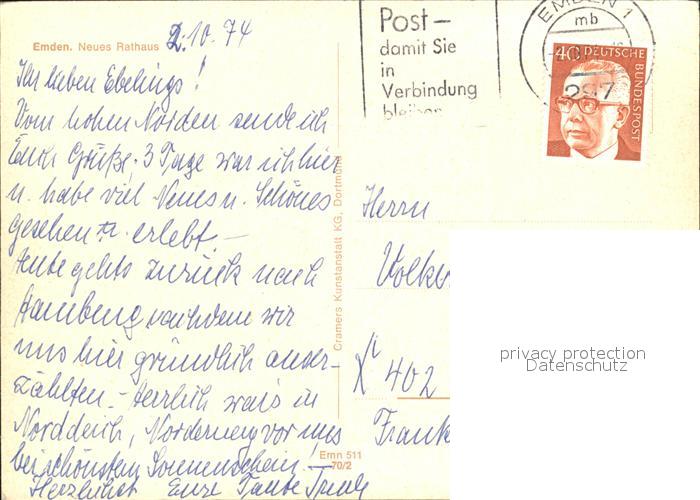 Emden. Neues Rathaus
2.10.74
Ihr lieben Ebelings!
Vom hohen Norden sende ich
Euch Grüße. 3 Tage war ich hier
u. habe viel Neues u. Schönes
gesehen u. erlebt. –
Heute gehts zurück nach
Hamburg nachdem wir
uns hier gründlich aus er-
zählten. – Herrlich wars in
Norddeich, Norderney vor uns
bei schönstem Sonnenschein.
Herzlichst Eure Tante
Cramers Kunstanstalt KG, Dortmund
Emn 511
70/2
Post –
damit Sie
in
Verbindung
bleiben
EMDEN 1
mb
297
40 DEUTSCHE
BUNDESPOST
Herrn
Volker
402
Frank
privacy protection
Datenschutz